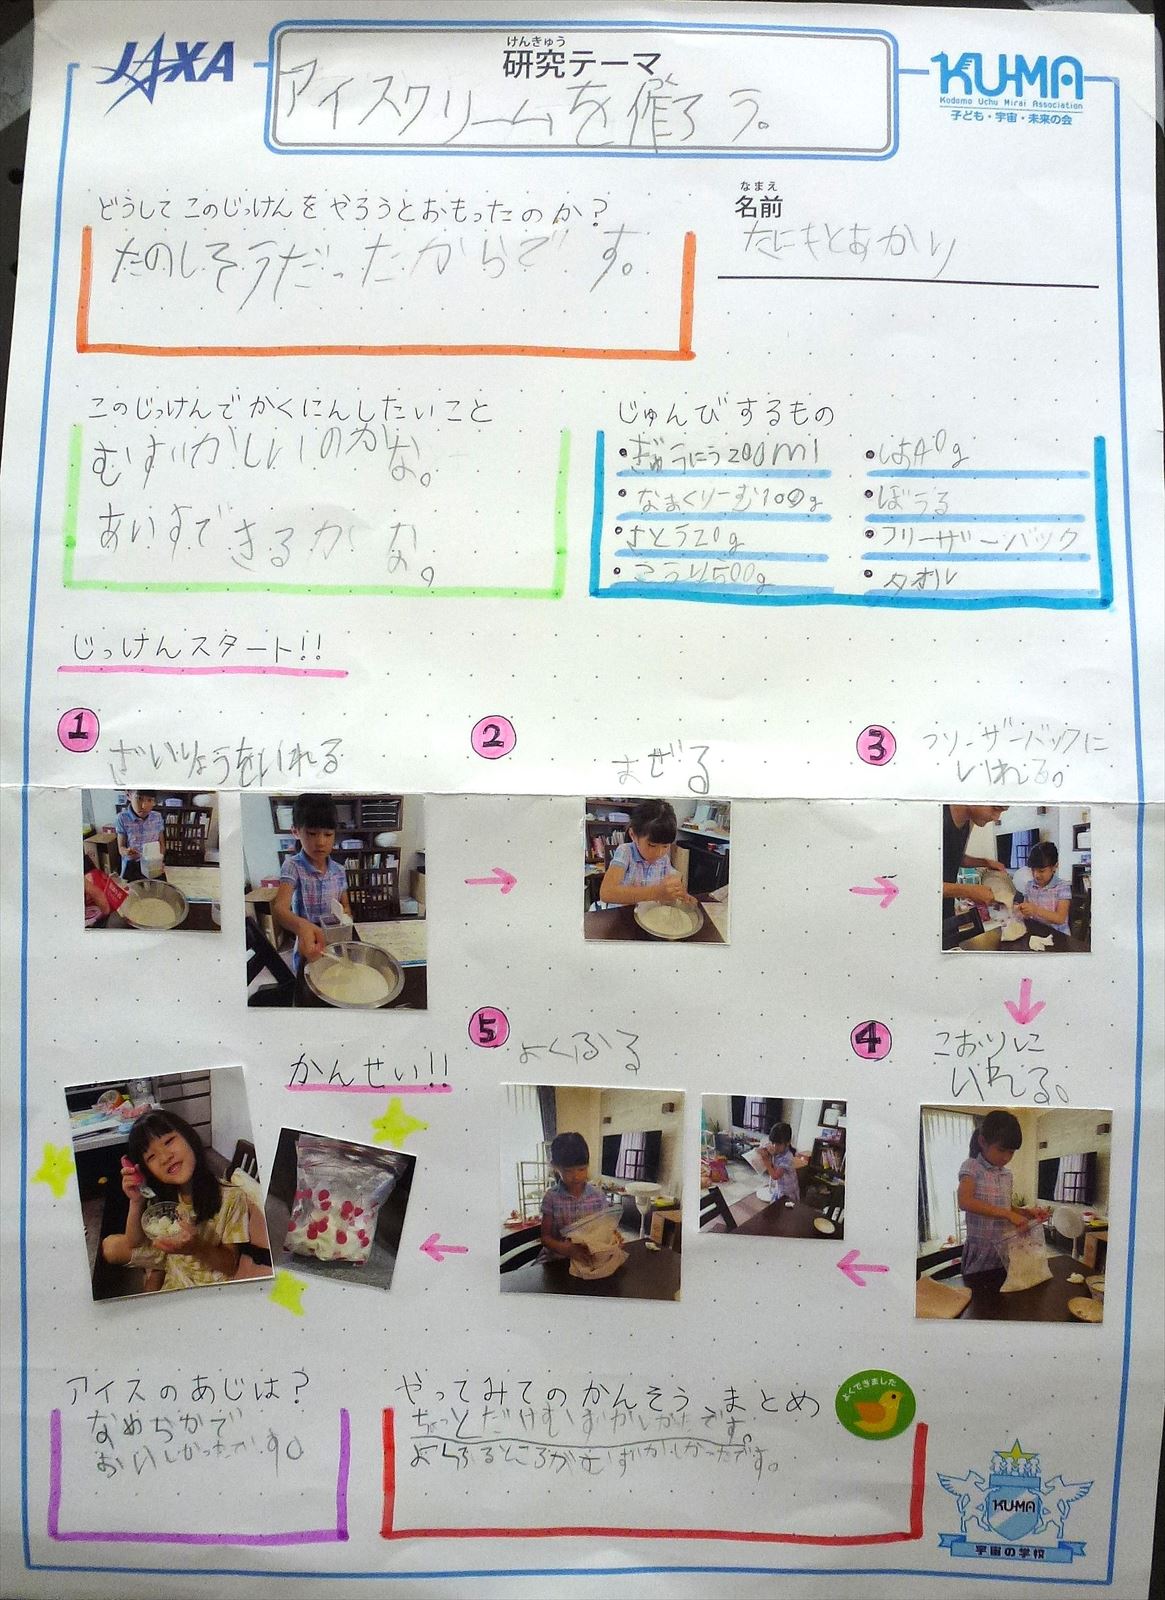 JAXA
けんきゅう
研究テーマ
KU-MA
Kodomo Uchu Mirai Association
子ども・宇宙・未来の会
アイスクリームを催ろう。
どうしてこのじっけんをやろうとおもったのか?
たのしそうだったからです。
なまえ
名前
たにもとあかり
このじっけんでかくにんしたいこと
むすいかしいのかな。
あいすできるかな。
じゅんびするもの
・ぎゅうにう200ml
・なまくりーむ100g
・さとう20g
・こうり500g
・しお40g
・ぼうる
・フリーザーバック
・タオル
じっけんスタート!!
1
ざいりょうをいれる
2
まぜる
3
フリーザーバックに
いれる。
4
こおりに
いれる。
5
よくふる
かんせい!!
アイスのあじは?
なめらかで
おいしかったです。
やってみてのかんそう まとめ
ちょっとだけむずかしかたです。
よくふるところがむずかしかったです。
よくできました
KU-MA
宇宙の学校